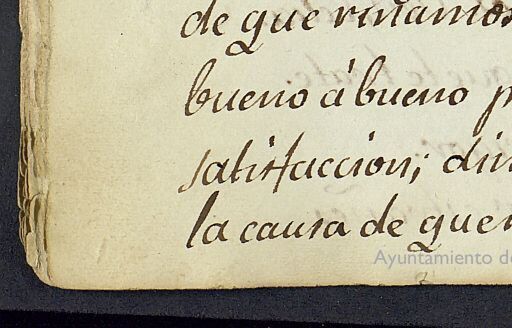 de que riñamos
bueno á bueno p
satisfaccion; di
la causa de quer
Ayuntamiento d